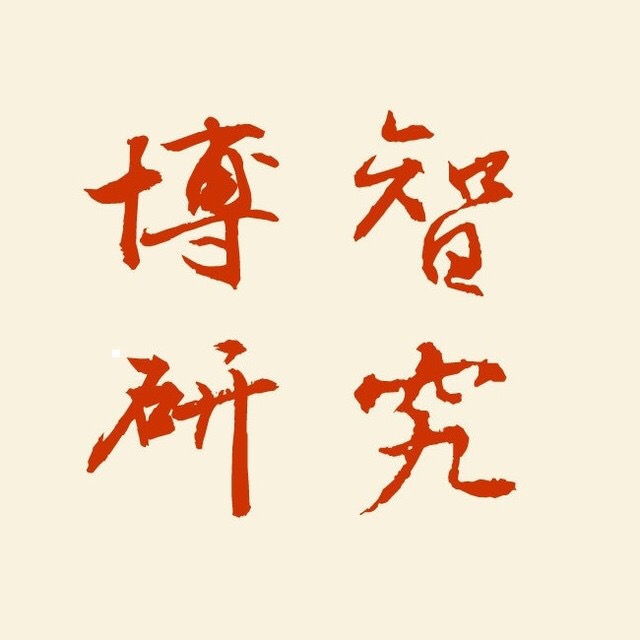 博智
研究